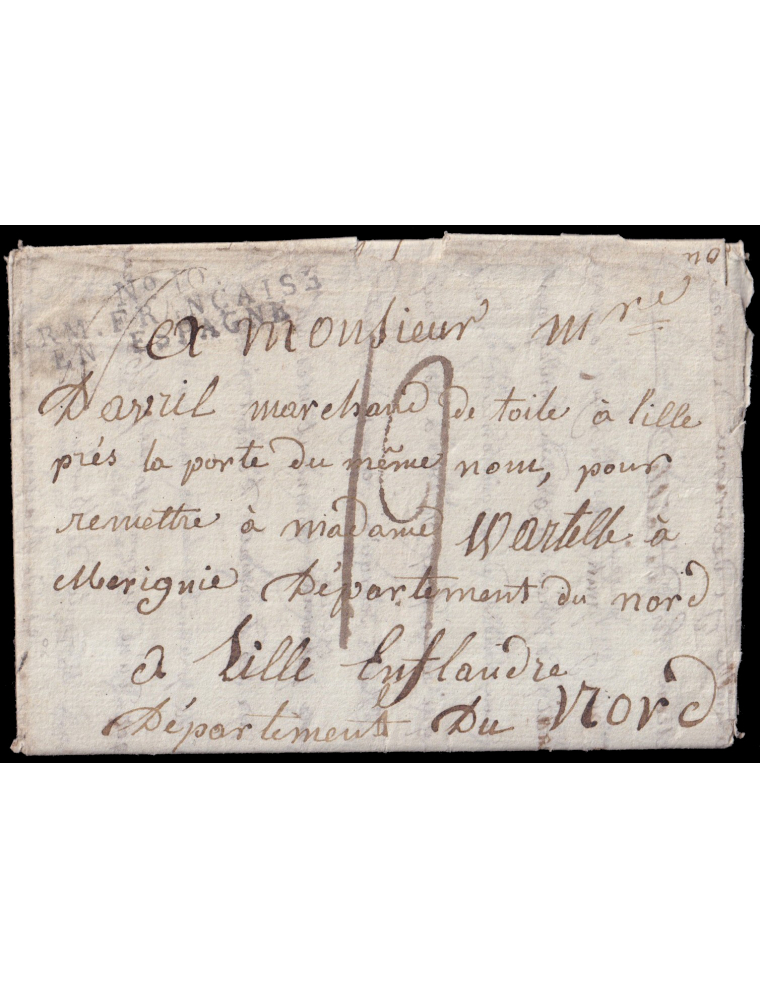 No 10
ARM. FRANÇAISE
EN ESPAGNE
no
a monsieur mre
Davril marchand de toile à lille
près la porte du même nom, pour
remettre à madame Wartelle à
Merignie Département du nord
a Lille Enflandre
Département Du Nord